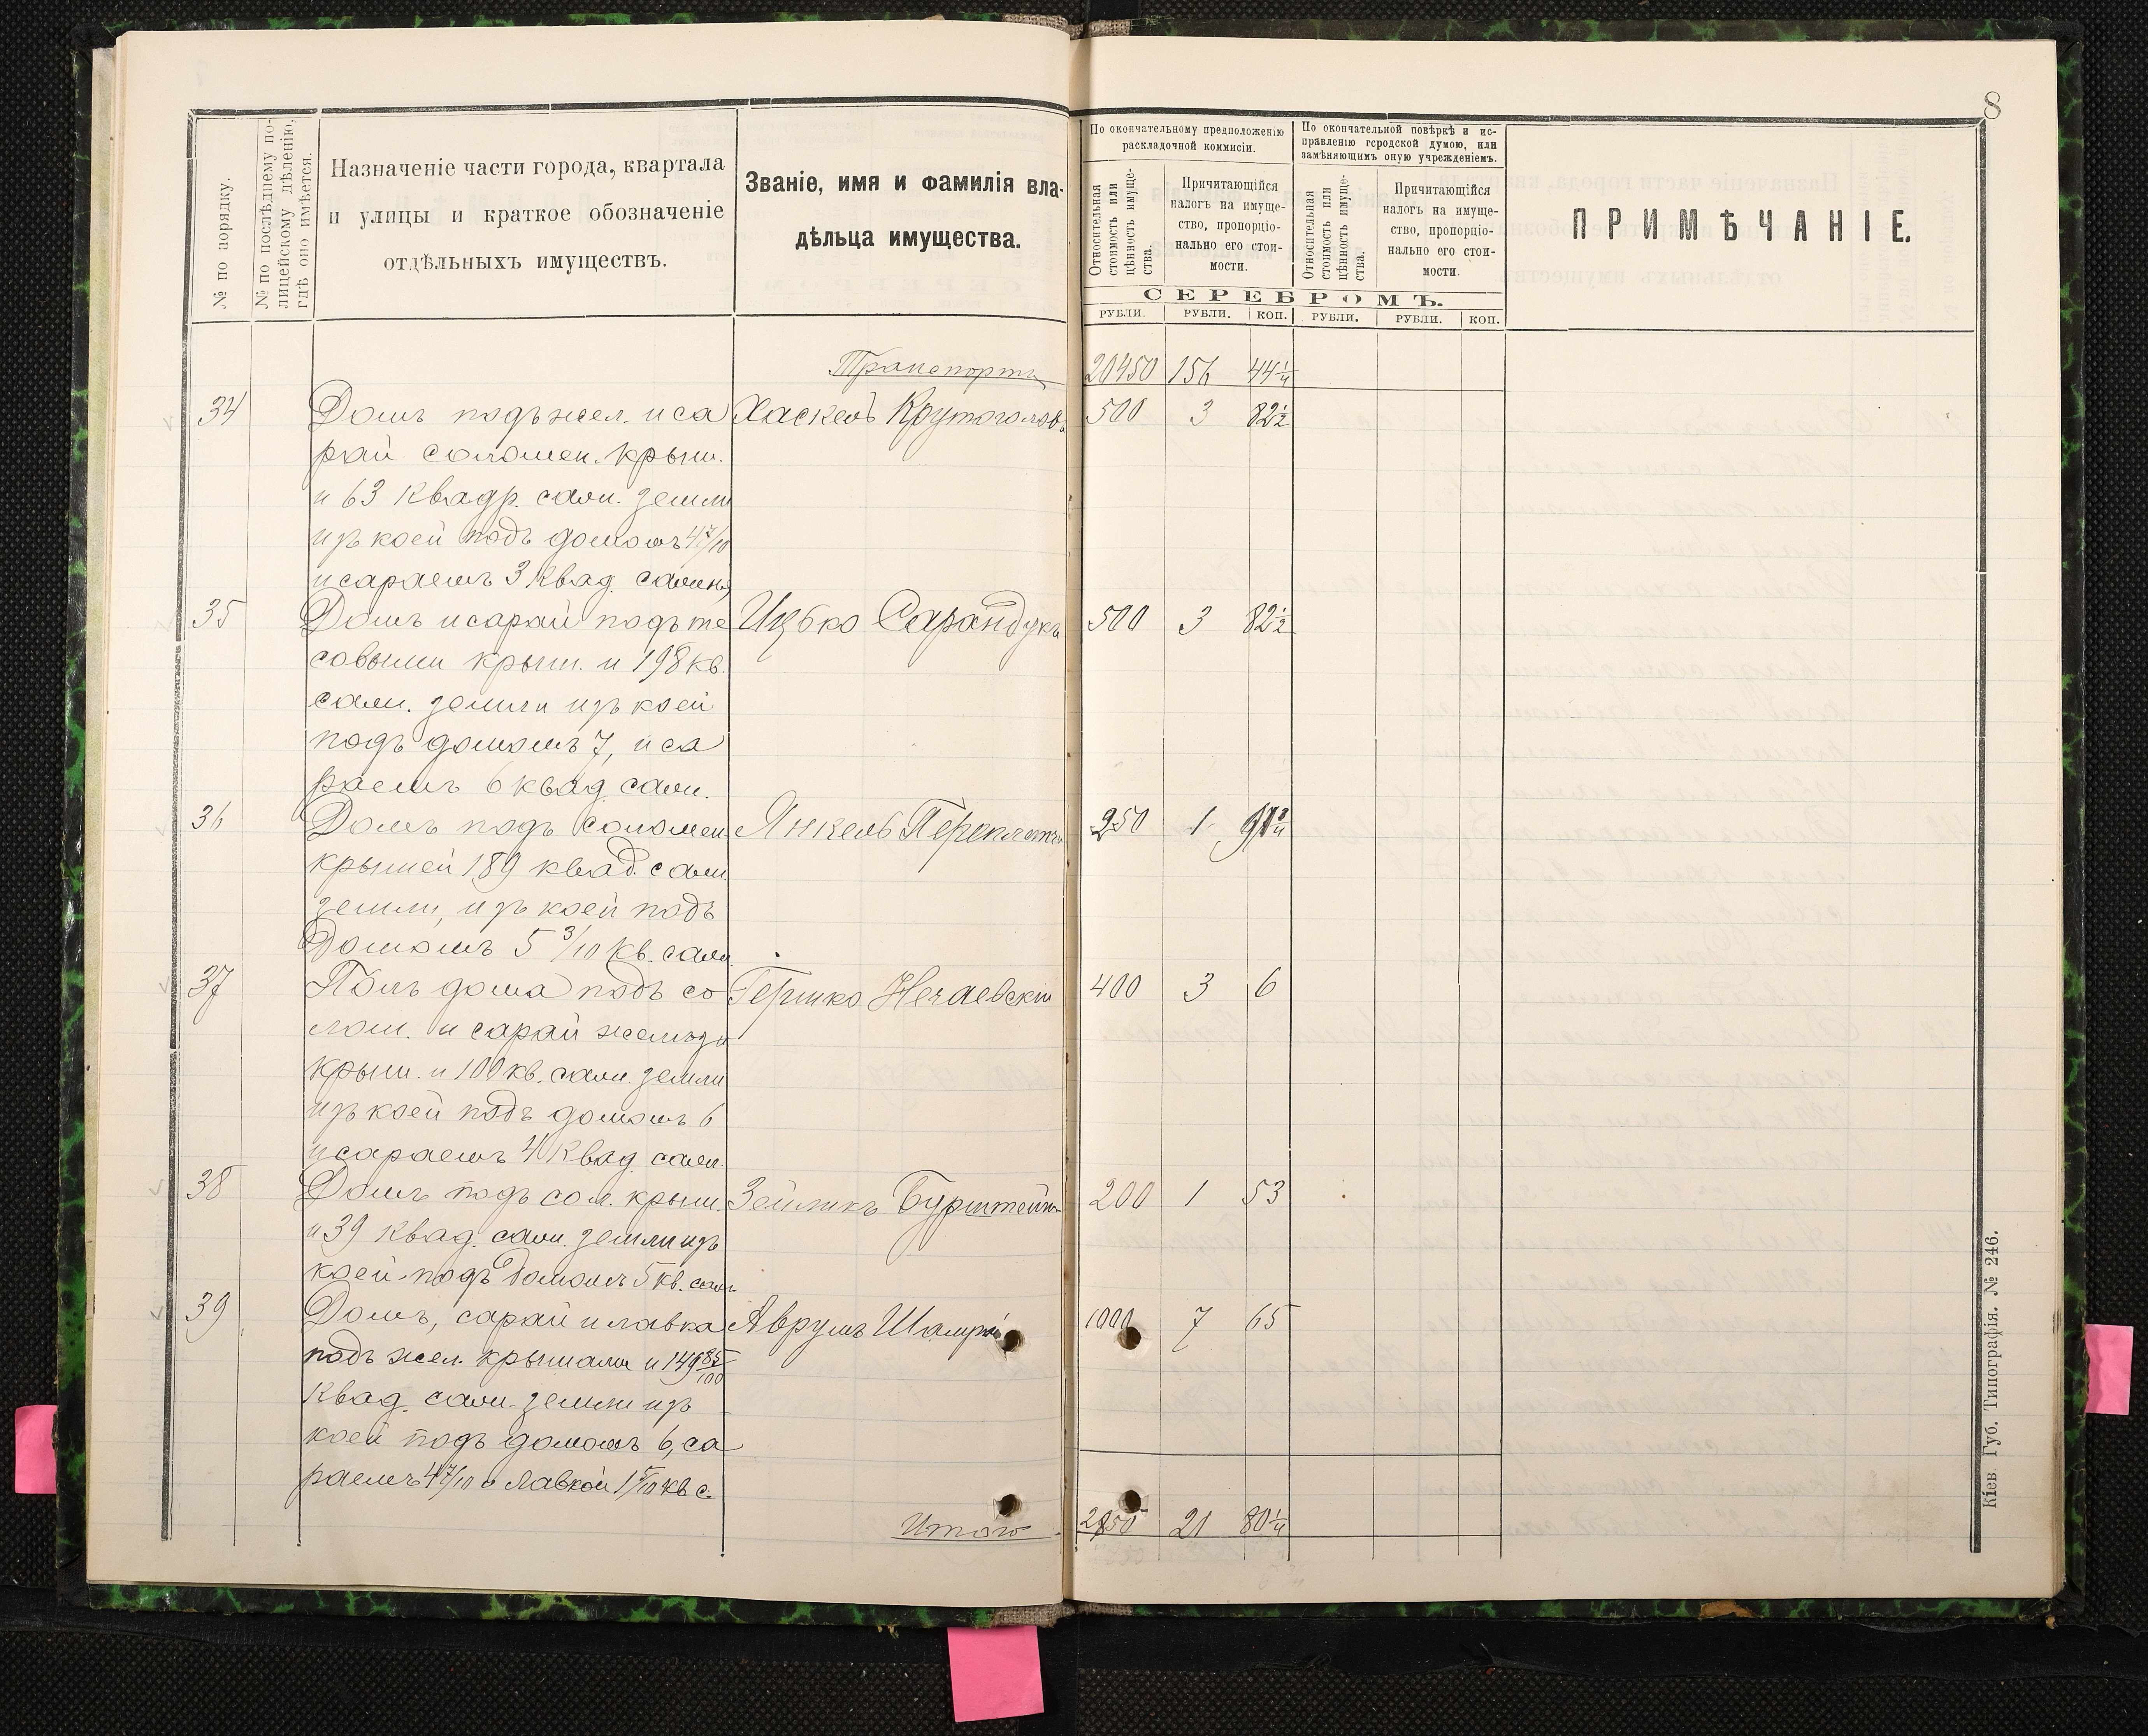 8
№ по порядку.
№ по послѣднему по-
лицейскому дѣленію,
гдѣ оно имѣется.
Назначеніе части города, квартала
и улицы и краткое обозначеніе
отдѣльныхъ имуществъ.
Званіе, имя и фамилія вла-
дѣльца имущества.
По окончательному предположенію
раскладочной коммисіи.
Относительная
стоимость или
цѣнность имуще-
ства.
Причитающійся
налогъ на имуще-
ство, пропорціо-
нально его стои-
мости.
По окончательной повѣркѣ и ис-
правленію городской думою, или
замѣняющимъ оную учрежденіемъ.
Относительная
стоимость или
цѣнность имуще-
ства.
Причитающійся
налогъ на имуще-
ство, пропорціо-
нально его стои-
мости.
СЕРЕБРОМЪ.
РУБЛИ. РУБЛИ. КОП. РУБЛИ. РУБЛИ. КОП.
ПРИМѢЧАНІЕ.
Транспортъ 20450 156 44¼
34 Домъ подъ жел. и са Хаскель Крутоголовъ 500 3 82½
рай соломен. крыш.
и 63 квадр. саж. земли
изъ коей подъ домомъ 4 7/10
и сараемъ 3 квад. сажня
35 Домъ и сарай подъ те Ицько Сарандукъ 500 3 82½
совыми крыш. и 198 кв.
саж. земли изъ коей
подъ домомъ 7, и са
раемъ 6 квад. саж.
36 Домъ подъ соломен Янкель 250 1 91¼
крышей 189 квад. саж.
земли, изъ коей подъ
домомъ 5 3/10 кв. саж.
37 Полъ дома подъ со Гершко Нечаевскій 400 3 6
лом. и сарай желѣзн
крыш. и 100 кв. саж. земли
изъ коей подъ домомъ 6
и сараемъ 4 квад. саж.
38 Домъ подъ сол. крыш. Зейликъ Бурштейнъ 200 1 53
и 39 квад. саж. земли изъ
коей подъ домомъ 5 кв. саж.
39 Домъ, сарай и лавка Аврумъ 1000 7 65
подъ жел. крышами и 149 85/100
квад. саж. земли изъ
коей подъ домомъ 6, са
раемъ 4 7/10 и лавкой 1 5/10 кв. с.
Итого 2850 21 80¼
Кіев. Губ. Типографія. № 246.